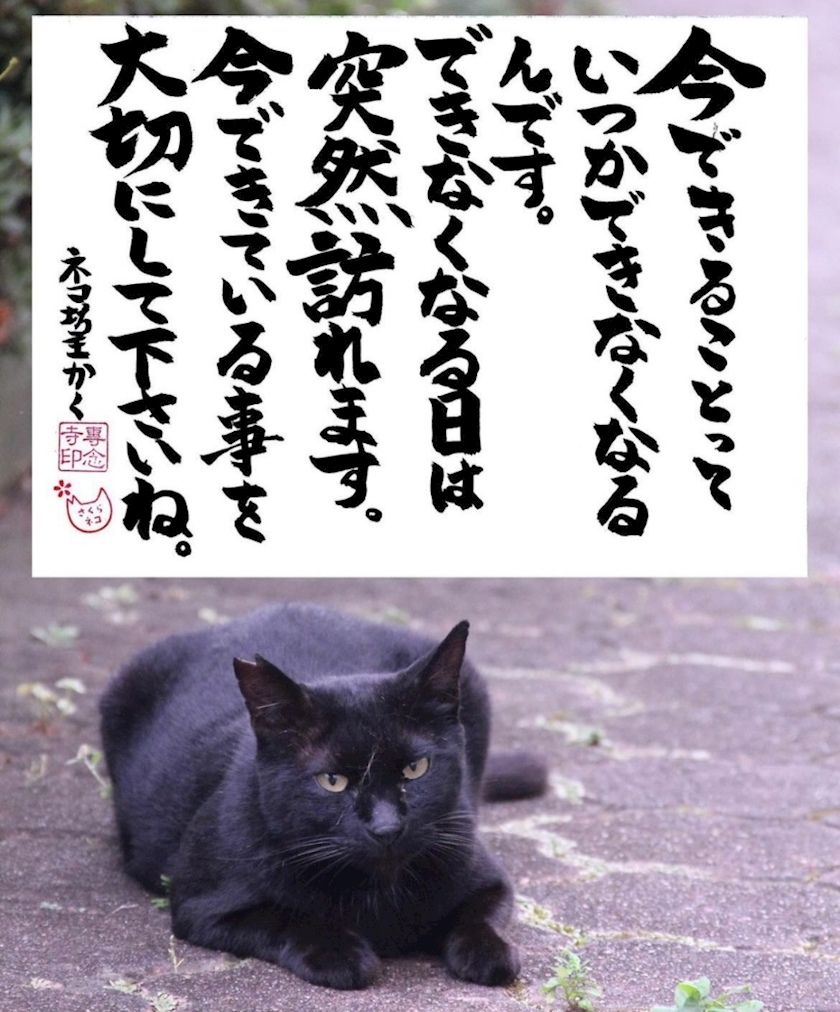 今できることって
いつかできなくなる
んです。
できなくなる日は
突然訪れます。
今できている事を
大切にして下さいね。
ネコ坊主かく
專念
寺印
さくら
ネコ